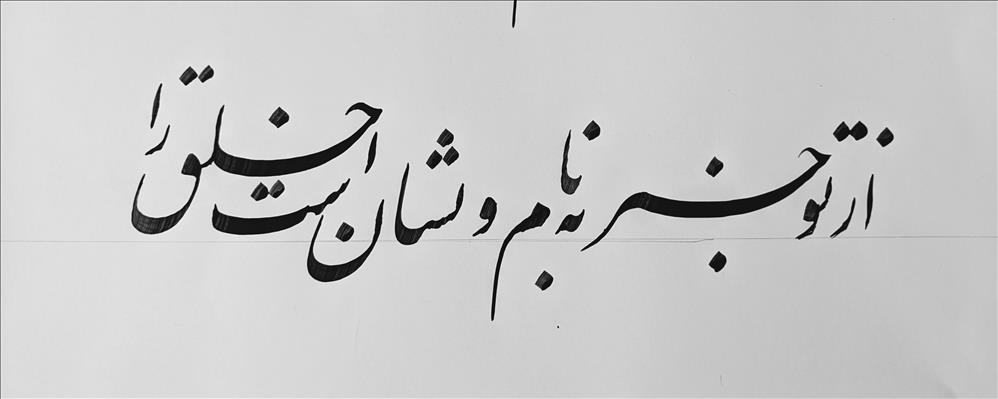 از تو خبر به نام و نشان است خلق را